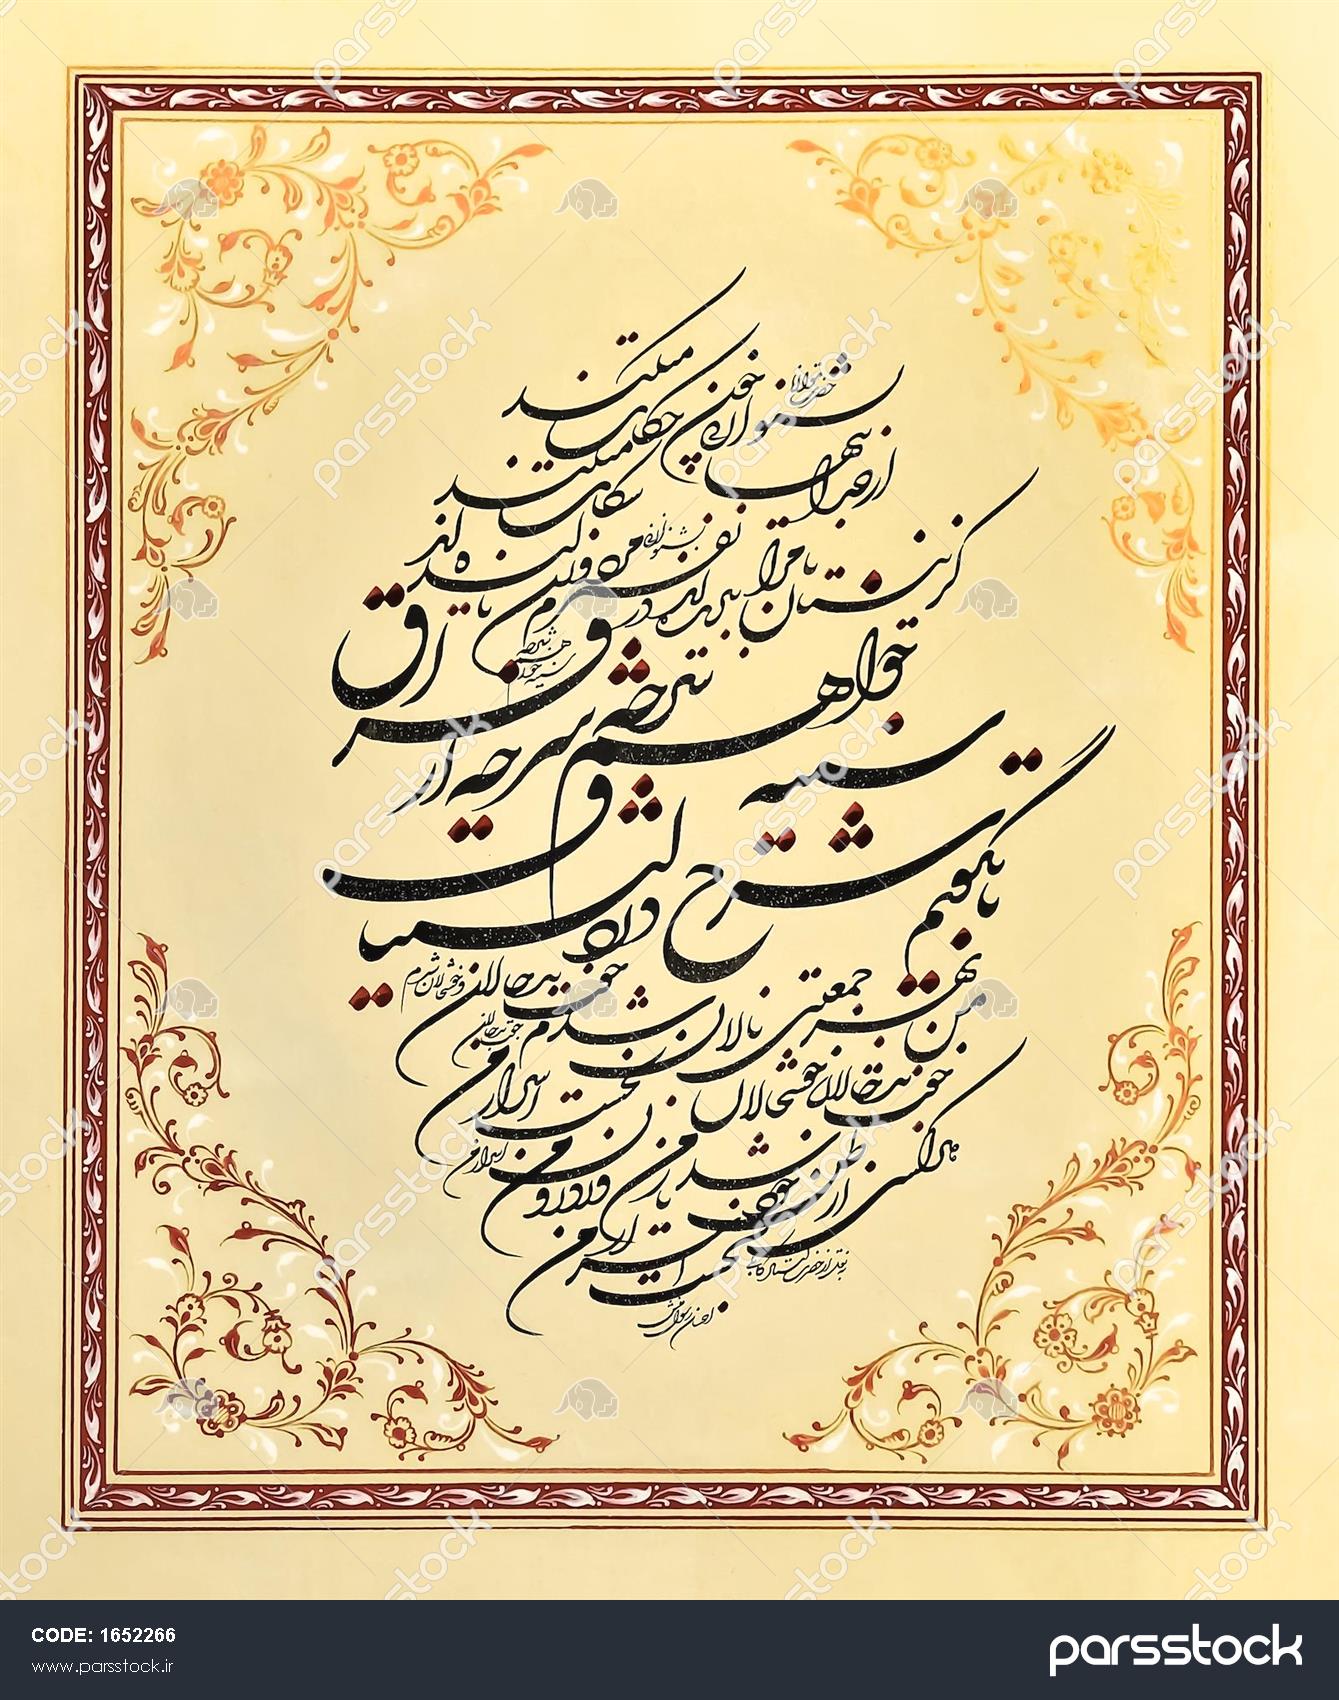 حضرت مولانا
بشنو از نی چون حکایت میکند
از جداییها شکایت میکند
کز نیستان تا مرا ببریده اند
در نفیرم مرد و زن نالیده اند
سینه خواهم شرحه شرحه از فراق
تا بگویم شرح درد اشتیاق
من به هر جمعیتی نالان شدم
جفت بدحالان و خوشحالان شدم
هر کسی از ظن خود شد یار من
وز درون من نجست اسرار من
CODE: 1652266
www.parsstock.ir
parsstock